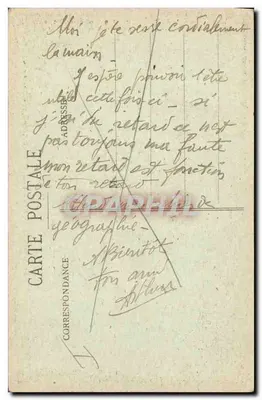 Moi je te serre cordialement
la main.
J'espère pouvoir t'être
utile cette fois ci - si
j'ai du retard ce n'est
pas toujours ma faute
mon retard est fonction
de ton retard
de
géographie -
A Bientôt
ton ami
CARTE POSTALE
CORRESPONDANCE
ADRESSE
CPAPHIL